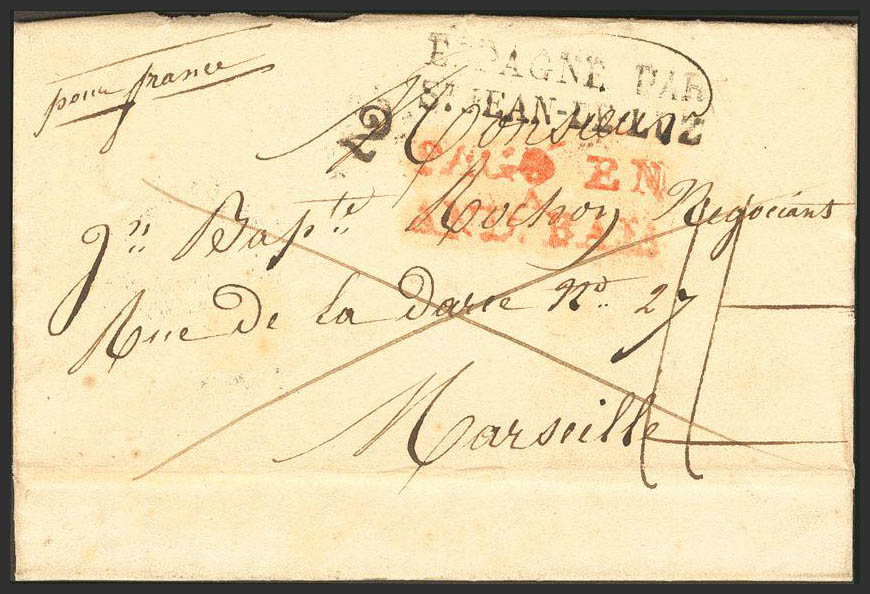 pour france
ESPAGNE PAR
St JEAN-DE-LUZ
2
Monsieur
PAGÓ EN
AND. BAXA
Jn Bapte Rochon Negociant
Rue De la Darce No 27
Marseille